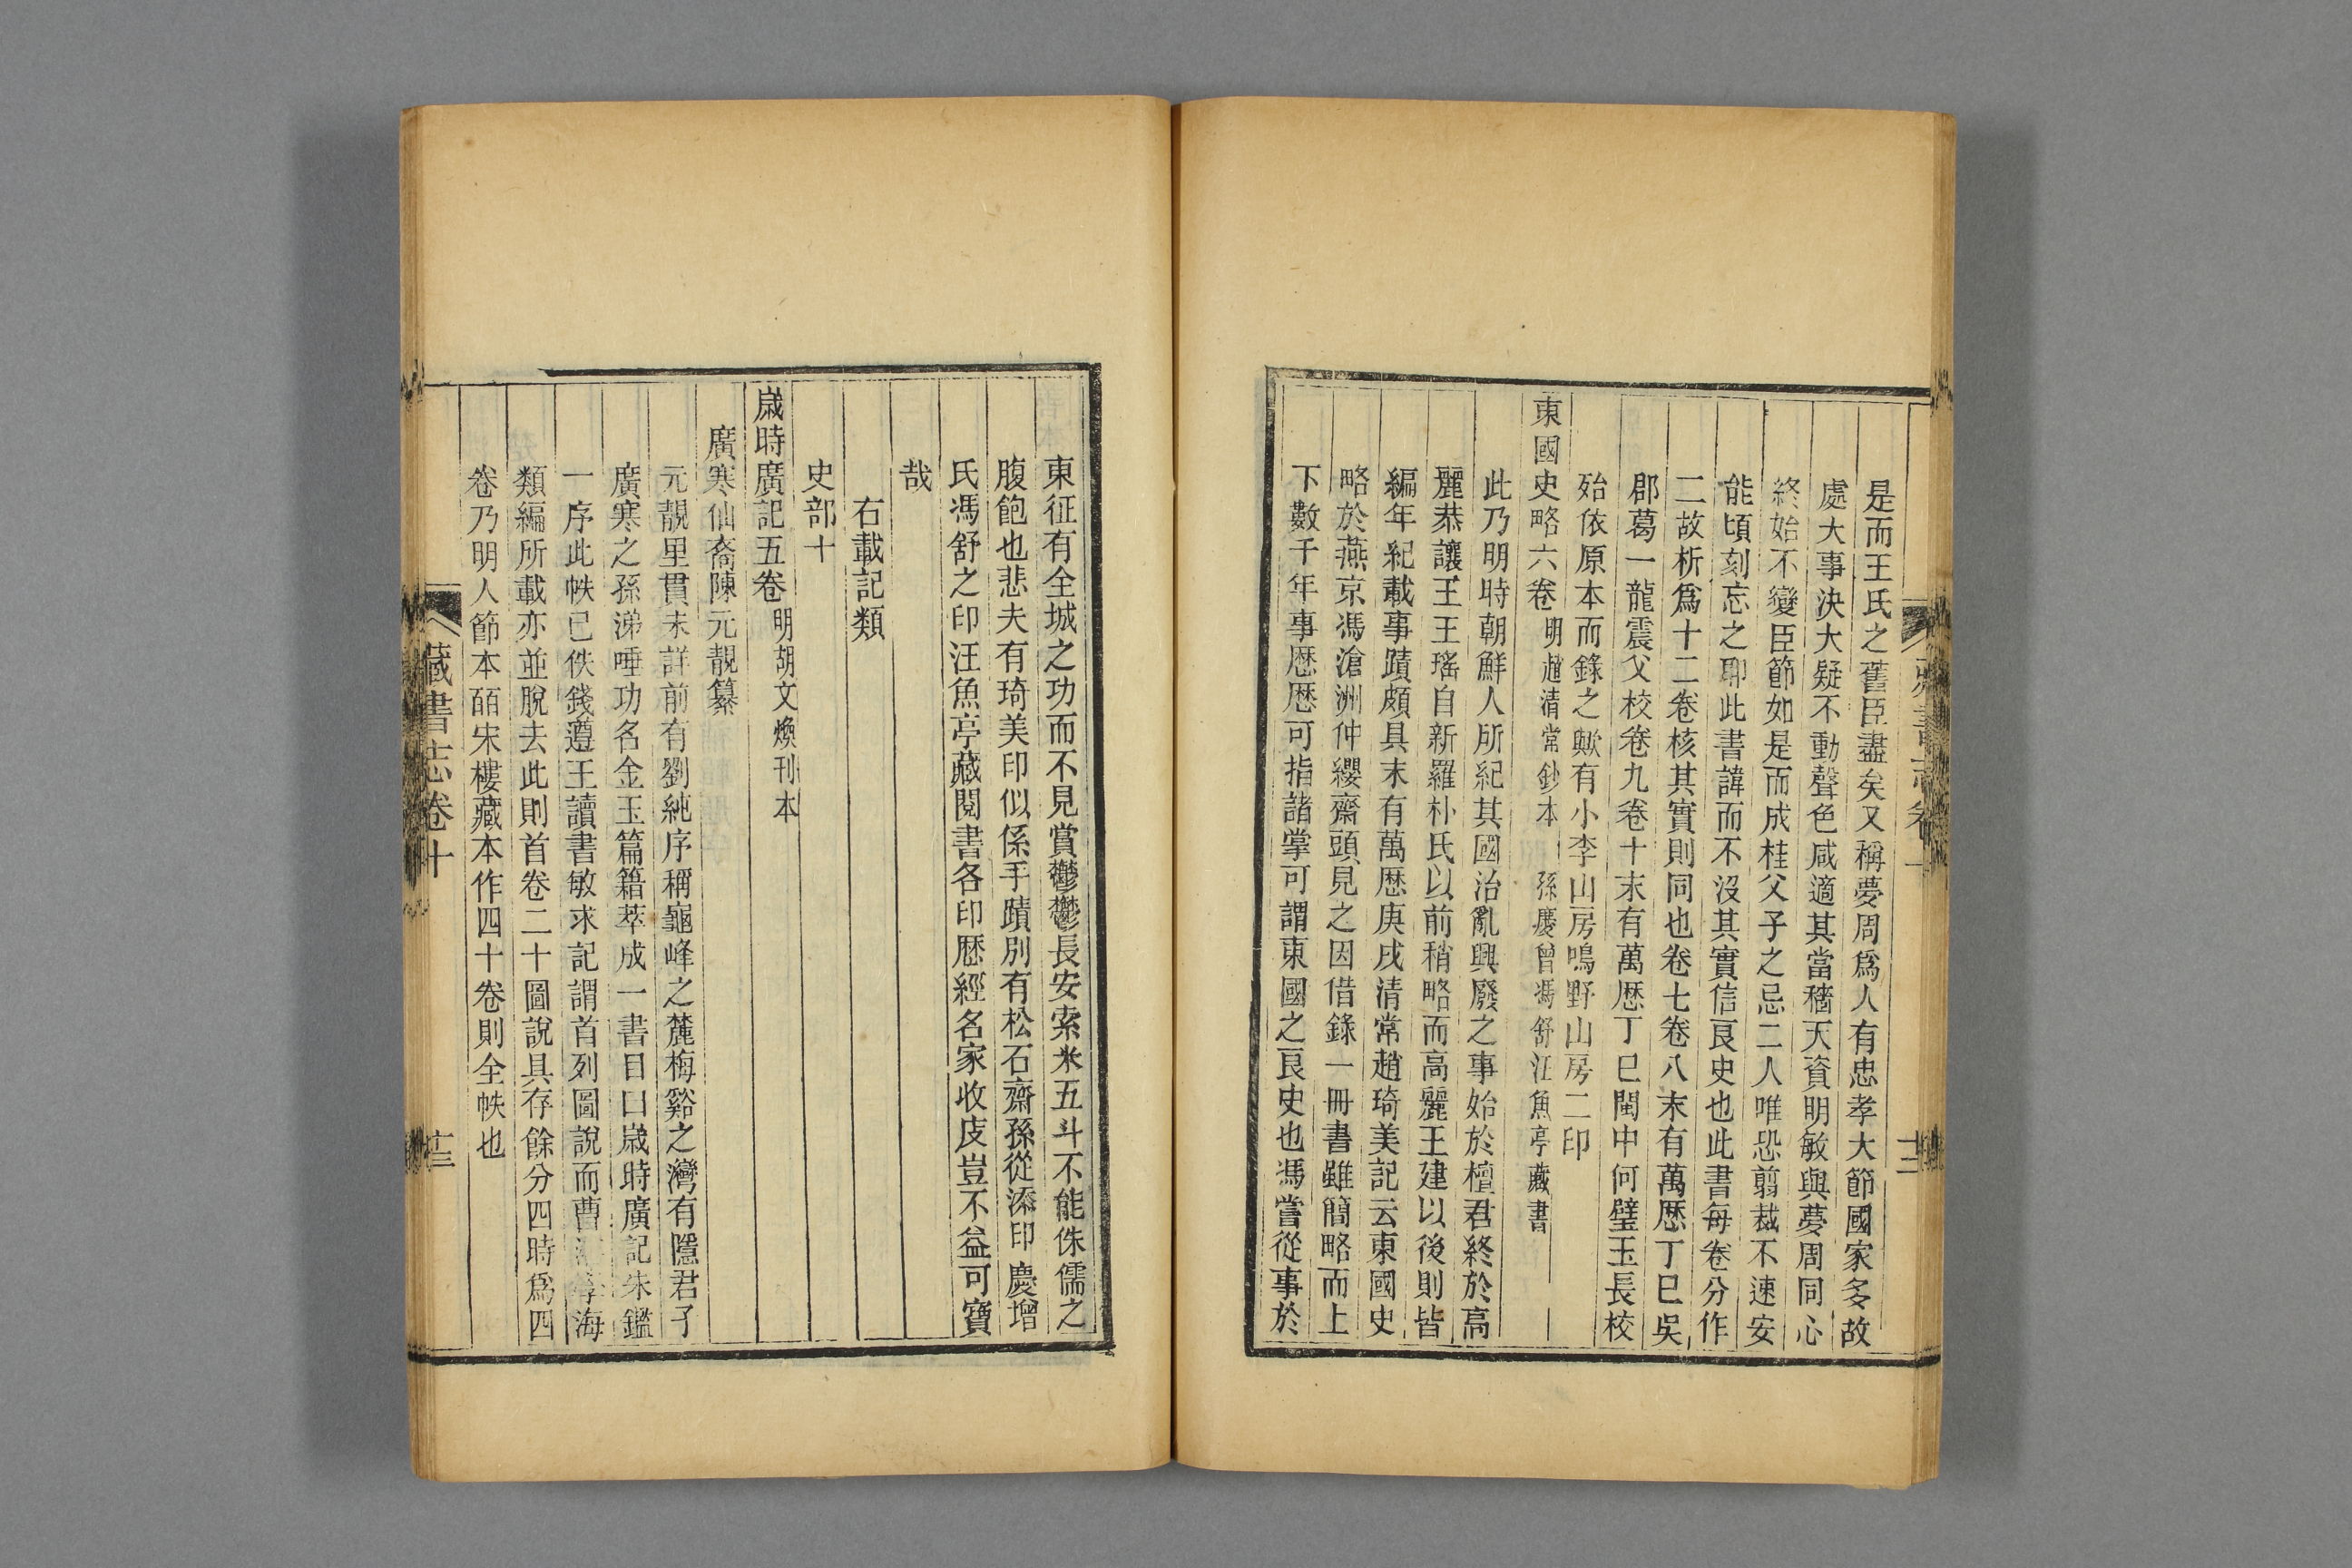 是而王氏之舊臣盡矣又稱夢周爲人有忠孝大節國家多故
處大事決大疑不動聲色咸適其當穡天資明敏與夢周同心
終始不變臣節如是而成桂父子之忌二人唯恐翦裁不速安
能頃刻忘之耶此書諱而不沒其實信良史也此書每卷分作
二故析爲十二卷核其實則同也卷七卷八末有萬厯丁巳吳
郡葛一龍震父校卷九卷十末有萬厯丁巳閩中何璧玉長校
殆依原本而錄之歟有小李山房鳴野山房二印
東國史略六卷 明趙清常鈔本 孫慶曾馮舒汪魚亭藏書
此乃明時朝鮮人所紀其國治亂興廢之事始於檀君終於高
麗恭讓王王瑤自新羅朴氏以前稍略而高麗王建以後則皆
編年紀載事蹟頗具末有萬厯庚戌清常趙琦美記云東國史
略於燕京馮滄洲仲纓齋頭見之因借錄一冊書雖簡略而上
下數千年事厯厯可指諸掌可謂東國之良史也馮嘗從事於
東征有全城之功而不見賞鬱鬱長安索米五斗不能侏儒之
腹飽也悲夫有琦美印似係手蹟別有松石齋孫從添印慶增
氏馮舒之印汪魚亭藏閱書各印厯經名家收庋豈不益可寶
哉
右載記類
史部十
歲時廣記五卷 明胡文煥刊本
廣寒仙裔陳元靚纂
元靚里貫未詳前有劉純序稱龜峰之麓梅谿之灣有隱君子
廣寒之孫涕唾功名金玉篇籍萃成一書目曰歲時廣記朱鑑
一序此帙已佚錢遵王讀書敏求記謂首列圖說而曹學海
類編所載亦並脫去此則首卷二十圖說具存餘分四時爲四
卷乃明人節本皕宋樓藏本作四十卷則全帙也
藏書志卷十
十三